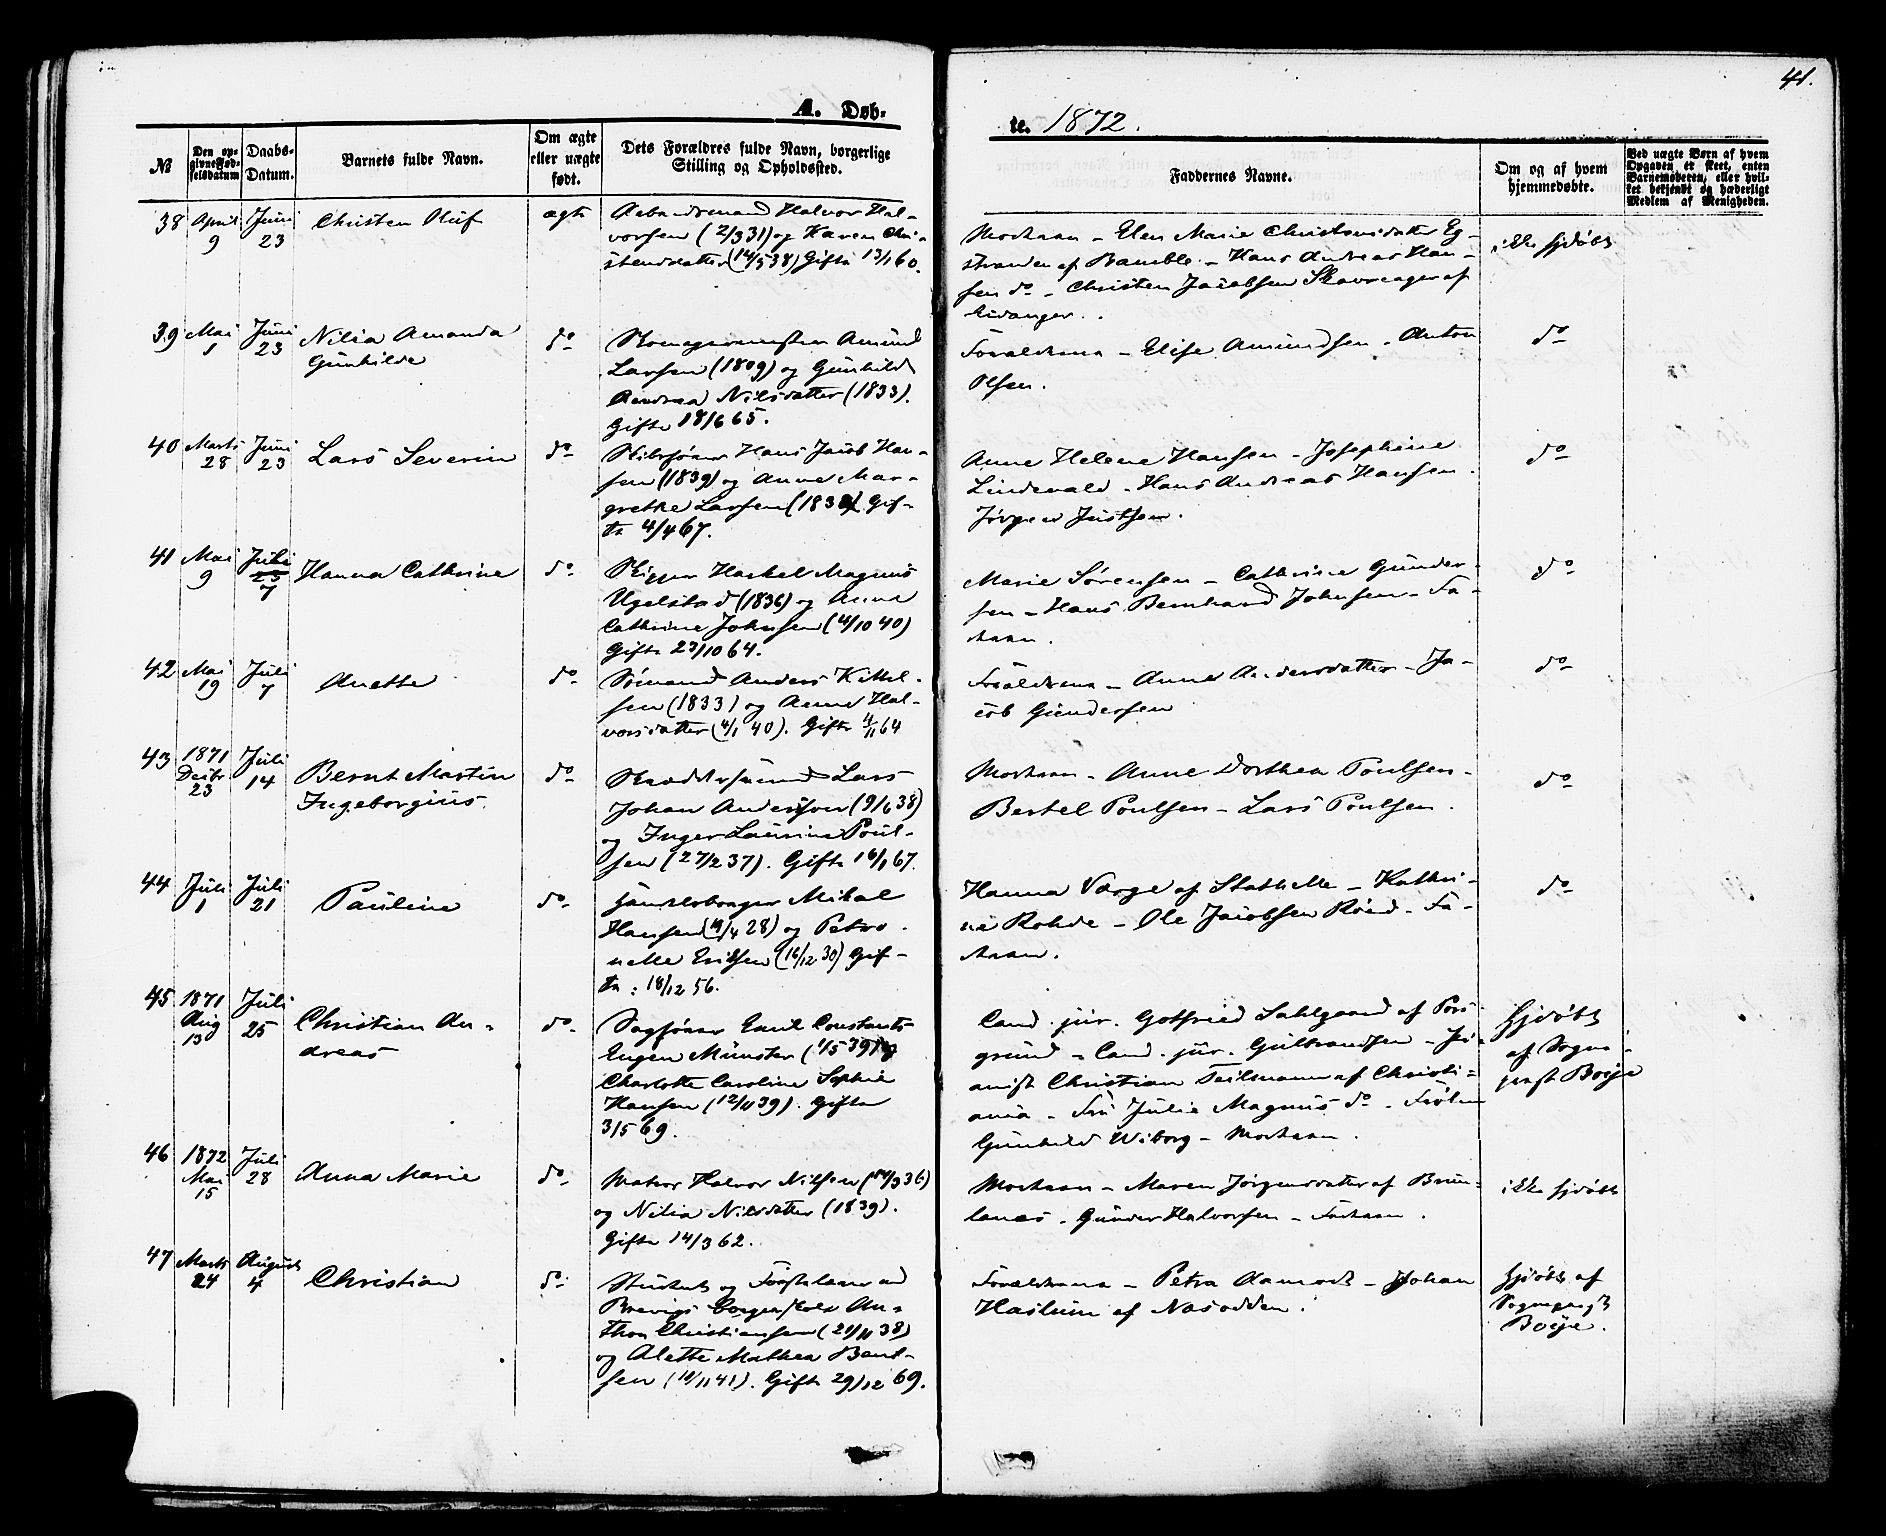 41.
A. Døb-
te. 1872.
№
Den op-
givne Fød-
selsdatum
Daabs-
Datum.
Barnets fulde Navn.
Om ægte
eller uægte
født.
Dets Forældres fulde Navn, borgerlige
Stilling og Opholdssted.
Faddernes Navne.
Om og af hvem
hjemmedøbte.
Ved uægte Børn af hvem
Opgaven er skeet, enten
Barnemoderen, eller hvil-
ket bekjendt og hæderligt
Medlem af Menigheden.
38 April 9
Juni 23
Christen
ægte
Halvor Hal-
vorsen (2/3 31) og Karen Chri-
stensdatter (14/5 38) Gifte 13/1 60.
Moderen – Elen Marie Christensdatter Eg-
stranden af Bamble – Hans Andreas Han-
sen do – Christen Jacobsen Skavreager af
Eidanger.
ikke hjdøbt
39 Mai 1
Juni 23
Nilia Amanda
Gunhilde
do
Skomagermester Amund
Larsen (1809) og Gunhild
Andrea Nilsdatter (1833).
Gifte 18/6 65.
Forældrene – Elise Amundsen – Anton
Olsen.
do
40 Marts 28
Juni 23
Lars Severin
do
Skibsfører Hans Jacob Han-
sen (1839) og Anne Mar-
grethe Larsen Gif-
te 4/4 67.
Anne Helene Hansen – Josephine
Lindevald – Hans Andreas Hansen.
Jørgen Justsen.
do
41 Mai 9
Juli 7
Hanna Cathrine
do
Skipper Haskel Magnus
Ugelstad (1836) og Anna
Cathrine Johnsen (4/10 40)
Gifte 23/10 64.
Marie Sørensen – Cathrine Gunder-
sen – Hans Bernhard Johnsen – Fa-
deren.
do
42 Mai 19
Juli 7
Anette
do
Sømand Anders Kittel-
sen (1833) og Anne Hal-
vorsdatter (4/1 40). Gifte 4/11 64
Forældrene – Anne Andersdatter – Ja-
cob Gundersen
do
43 1871 Decbr 23
Juli 14
Bernt Martin
Ingeborgius.
do
Skræddersvend Lars
Johan Andersen (9/6 38)
og Inger Laurine Poul-
sen (27/2 37). Gifte 16/1 67.
Moderen – Anne Dorthea Poulsen –
Bertel Poulsen – Lars Poulsen.
do
44 Juli 1
Juli 21
Pauline
do
Handelsborger Mikal
Hansen og Petro-
nelle Eriksen (16/12 30) Gif-
te: 18/12 56.
Hanna Værge af Stathelle – Kathri-
ne Rohde – Ole Jacobsen – Fa-
deren.
do
45 1871 Aug 13
Juli 25
Christian An-
dreas
do
Sagfører Emil Constants
Eugen Münster (1/5 39) og
Charlotte Caroline Sophie
Hansen (12/11 39). Gifte
3/5 69.
Cand. jur. Gotfried Sahlgaard af Pors-
grund – Cand. jur. Gulbrandsen – Pi-
anist Christian Teilmann af Christi-
ania – Fru Julie Magnus do – Frøken
Gunhild Wiborg – Moderen.
Hjdøbt
af Sogne-
prest Boyse
46 1872 Mai 15
Juli 28
Anna Marie
do
Matros Halvor Nilsen (14/3 36)
og Nilia Nilsdatter (1839).
Gifte 14/3 62.
Moderen – Maren Jørgensdatter af Brun-
lanes – Gunder Halvorsen – Faderen.
ikke hjdøbt
47 Marts 24
August 4
Christian
do
Student og Førstelærer ved
Brevigs Borgerskole An-
thon Christiansen (21/11 38)
og Alette Mathea Bent-
sen (10/11 41). Gifte 29/12 69.
Forældrene – Petra Aamodt – Johan
Haslum af Næsodden.
hjdøbt af
Sogneprest
Boyse.